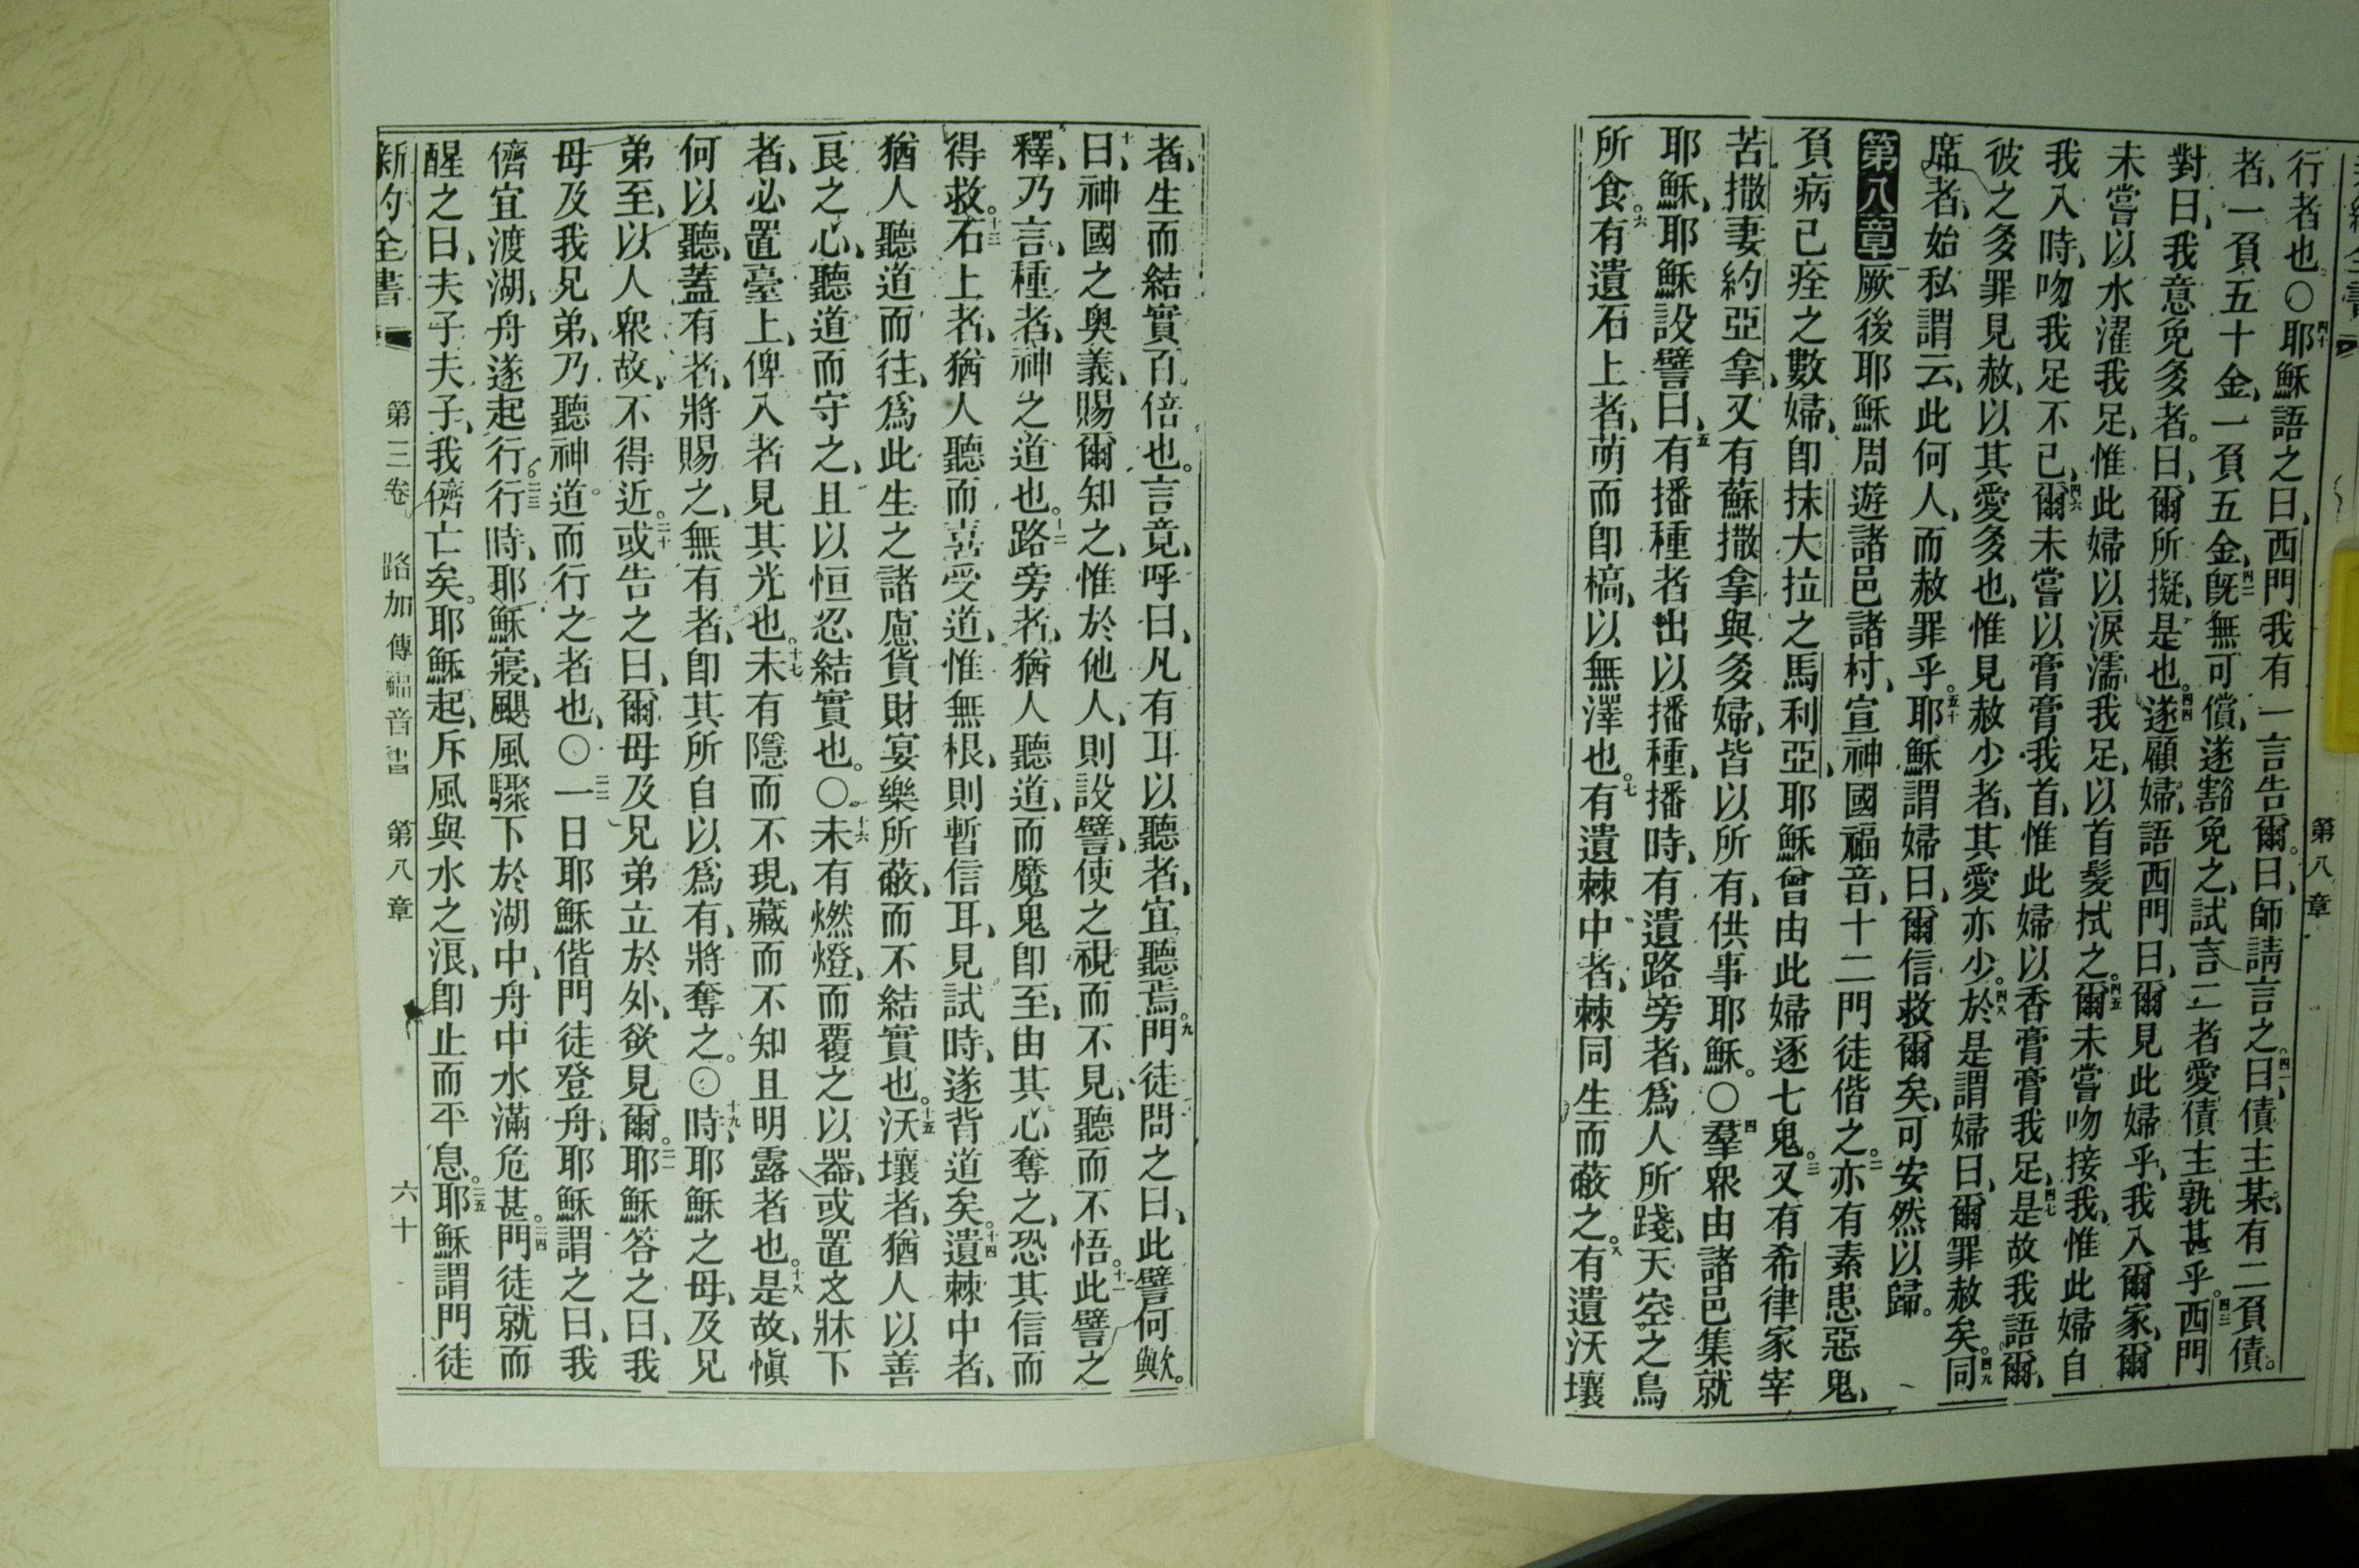 第八章
行者也。○四十耶穌語之曰、西門我有一言告爾。曰、師請言之。四一曰、債主某、有二負債。
者、一負五十金、一負五金、四二旣無可償、遂豁免之、試言二者愛債主孰甚乎。四三西門
對曰、我意免多者。曰、爾所擬、是也。四四遂顧婦、語西門曰、爾見此婦乎、我入爾家、爾
未嘗以水濯我足、惟此婦以淚濡我足、以首髮拭之。四五爾未嘗吻接我、惟此婦自
我入時、吻我足不已、四六爾未嘗以膏膏我首、惟此婦以香膏膏我足、四七是故我語爾、
彼之多罪見赦、以其愛多也、惟見赦少者、其愛亦少。四八於是謂婦曰、爾罪赦矣。四九同
席者、始私謂云、此何人、而赦罪乎。五十耶穌謂婦曰、爾信救爾矣、可安然以歸。
第八章 一厥後耶穌周遊諸邑諸村、宣神國福音、十二門徒偕之。二亦有素患惡鬼、
負病已痊之數婦、卽抹大拉之馬利亞、耶穌曾由此婦逐七鬼。三又有希律家宰
苦撒妻約亞拿、又有蘇撒拿與多婦、皆以所有、供事耶穌。○四羣衆由諸邑集就
耶穌、耶穌設譬曰、五有播種者出以播種、播時、有遺路旁者、爲人所踐、天空之鳥
所食。六有遺石上者、萌而卽槁、以無澤也。七有遺棘中者、棘同生而蔽之。八有遺沃壤
者、生而結實百倍也。言竟、呼曰、凡有耳以聽者、宜聽焉。九門徒問之曰、此譬何歟。
十曰、神國之奧義、賜爾知之、惟於他人、則設譬、使之視而不見、聽而不悟。十一此譬之
釋、乃言、種者、神之道也。十二路旁者、猶人聽道、而魔鬼卽至、由其心奪之、恐其信而
得救。十三石上者、猶人聽而喜受道、惟無根、則暫信耳、見試時、遂背道矣。十四遺棘中者、
猶人聽道而往、爲此生之諸慮貨財宴樂所蔽、而不結實也。十五沃壤者、猶人以善
良之心、聽道而守之、且以恒忍結實也。○十六未有燃燈、而覆之以器、或置之牀下
者、必置臺上、俾入者見其光也。十七未有隱而不現、藏而不知且明露者也。十八是故、愼
何以聽、蓋有者、將賜之、無有者、卽其所自以爲有、將奪之。○十九時、耶穌之母、及兄
弟至、以人衆故、不得近。二十或告之曰、爾母及兄弟立於外、欲見爾。二一耶穌答之曰、我
母及我兄弟、乃聽神道而行之者也、○二二一日耶穌偕門徒登舟、耶穌謂之曰、我
儕宜渡湖、舟遂起行。二三行時、耶穌寢、颶風驟下於湖中、舟中水滿危甚。二四門徒就而
醒之曰、夫子夫子、我儕亡矣。耶穌起、斥風與水之浪、卽止而平息。二五耶穌謂門徒
新約全書 第三卷 路加傳福音書 第八章 六十